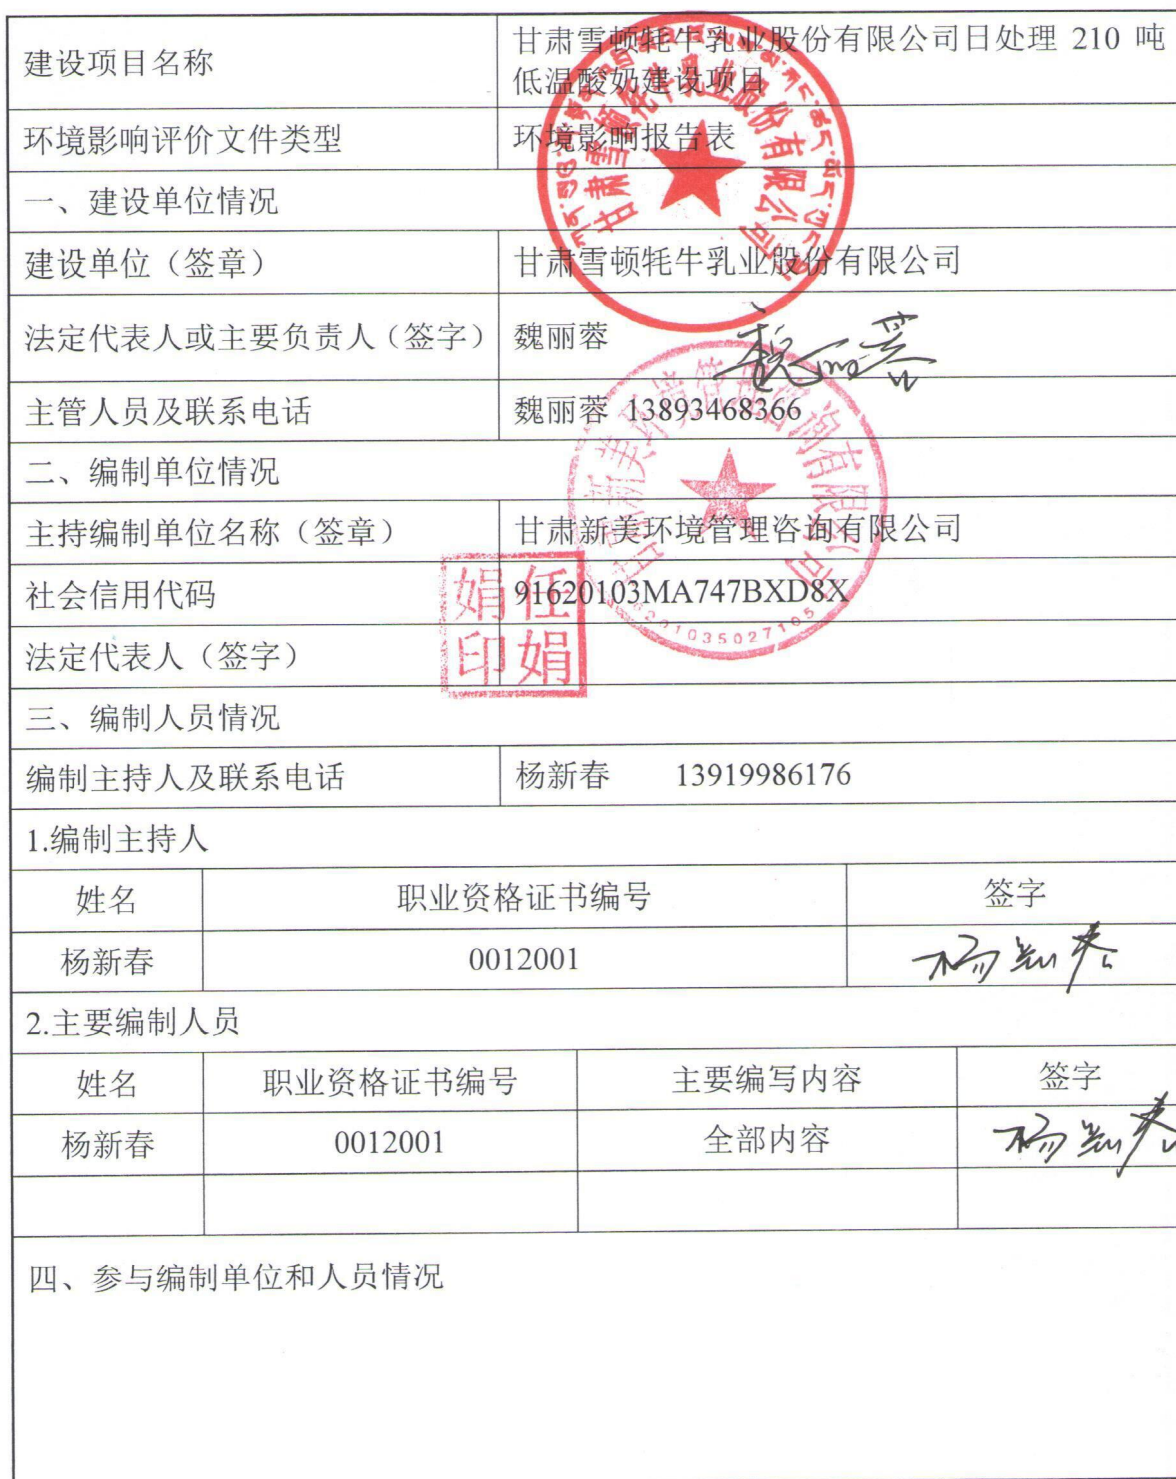 建设项目名称
甘肃雪顿牦牛乳业股份有限公司日处理 210 吨
低温酸奶建设项目
环境影响评价文件类型
环境影响报告表
一、建设单位情况
建设单位（签章）
甘肃雪顿牦牛乳业股份有限公司
甘肃雪顿牦牛乳业股份有限公司
法定代表人或主要负责人（签字）
魏丽蓉
魏丽蓉
主管人员及联系电话
魏丽蓉 13893468366
二、编制单位情况
主持编制单位名称（签章）
甘肃新美环境管理咨询有限公司
甘肃新美环境管理咨询有限公司
6201035027105
社会信用代码
91620103MA747BXD8X
法定代表人（签字）
任娟
娟印
三、编制人员情况
编制主持人及联系电话
杨新春 13919986176
1.编制主持人
姓名 职业资格证书编号 签字
杨新春 0012001 杨新春
2.主要编制人员
姓名 职业资格证书编号 主要编写内容 签字
杨新春 0012001 全部内容 杨新春
四、参与编制单位和人员情况